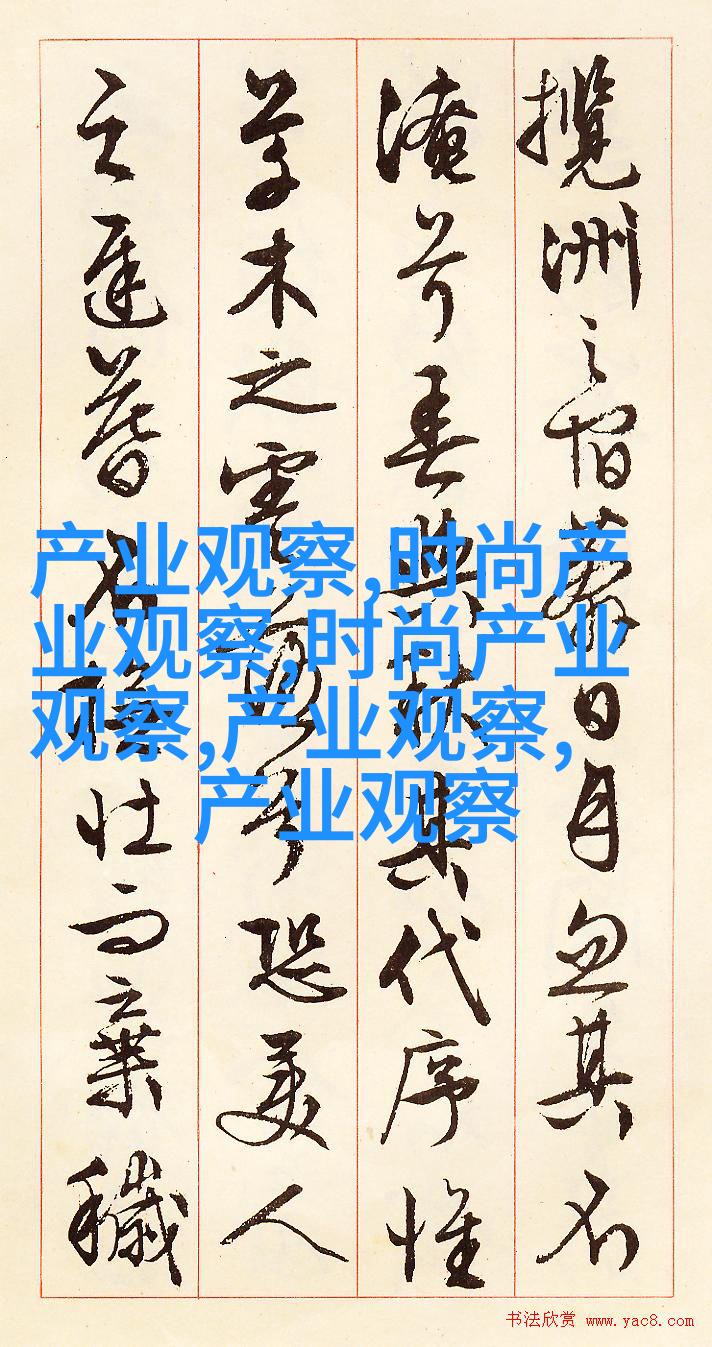 攬洲之宿莽日月忽其不
淹兮春與秋其代序惟
草木之零落兮恐美人
之遲暮不撫壯而棄穢
产业观察,时尚产
业观察,时尚产业
观察,产业观察,
产业观察
书法欣赏 www.yac8.com